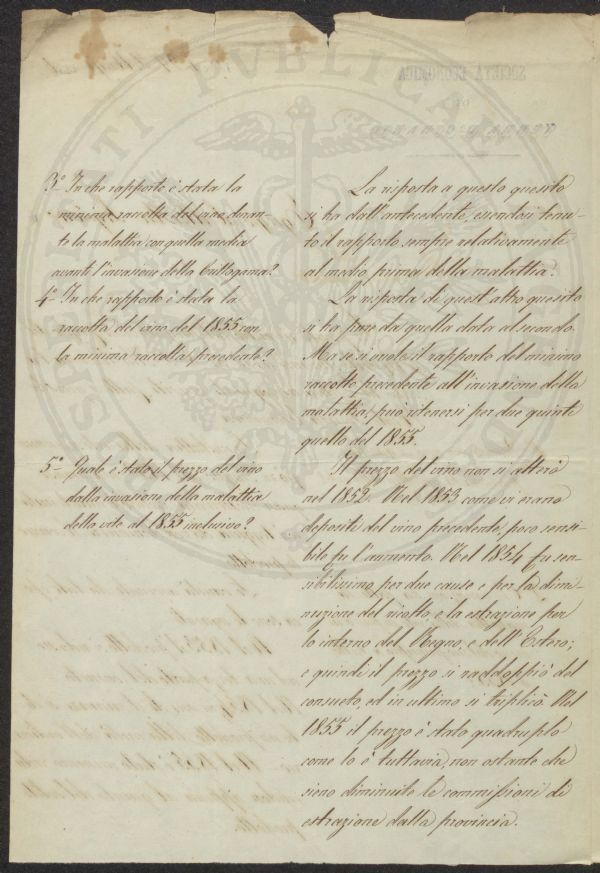 3.° In che rapporto è stata la
minima raccolta del vino duran-
te la malattia, con quella media
avanti l'invasione della Crittogama?
La risposta a questo quesito
si ha dall'antecedente, essendosi tenu-
to il rapporto sempre relativamente
al medio prima della malattia.
4.° In che rapporto è stata la
raccolta del vino del 1855 con
la minima raccolta precedente?
La risposta di quest'altro quesito
si ha pure da quella data al secondo.
Ma se si vuole il rapporto del minimo
raccolto precedente all'invasione della
malattia, può ritenersi per due quinti
quello del 1855.
5.° Quale è stato il prezzo del vino
dalla invasione della malattia
della vite al 1855 inclusivo?
Il prezzo del vino non si alterò
nel 1852. Nel 1853 come vi erano
depositi del vino precedente, poco sensi-
bile fu l'aumento. Nel 1854 fu sen-
sibilissimo, per due cause e per la dimi-
nuzione del ricolto, e la estrazione per
lo interno del Regno, e dell'Estero;
e quindi il prezzo si raddoppiò del
consueto, ed in ultimo si triplicò. Nel
1855 il prezzo è stato quadruplo
come lo è tuttavia, non ostante che
sieno diminuite le commissioni di
estrazione dalla provincia.